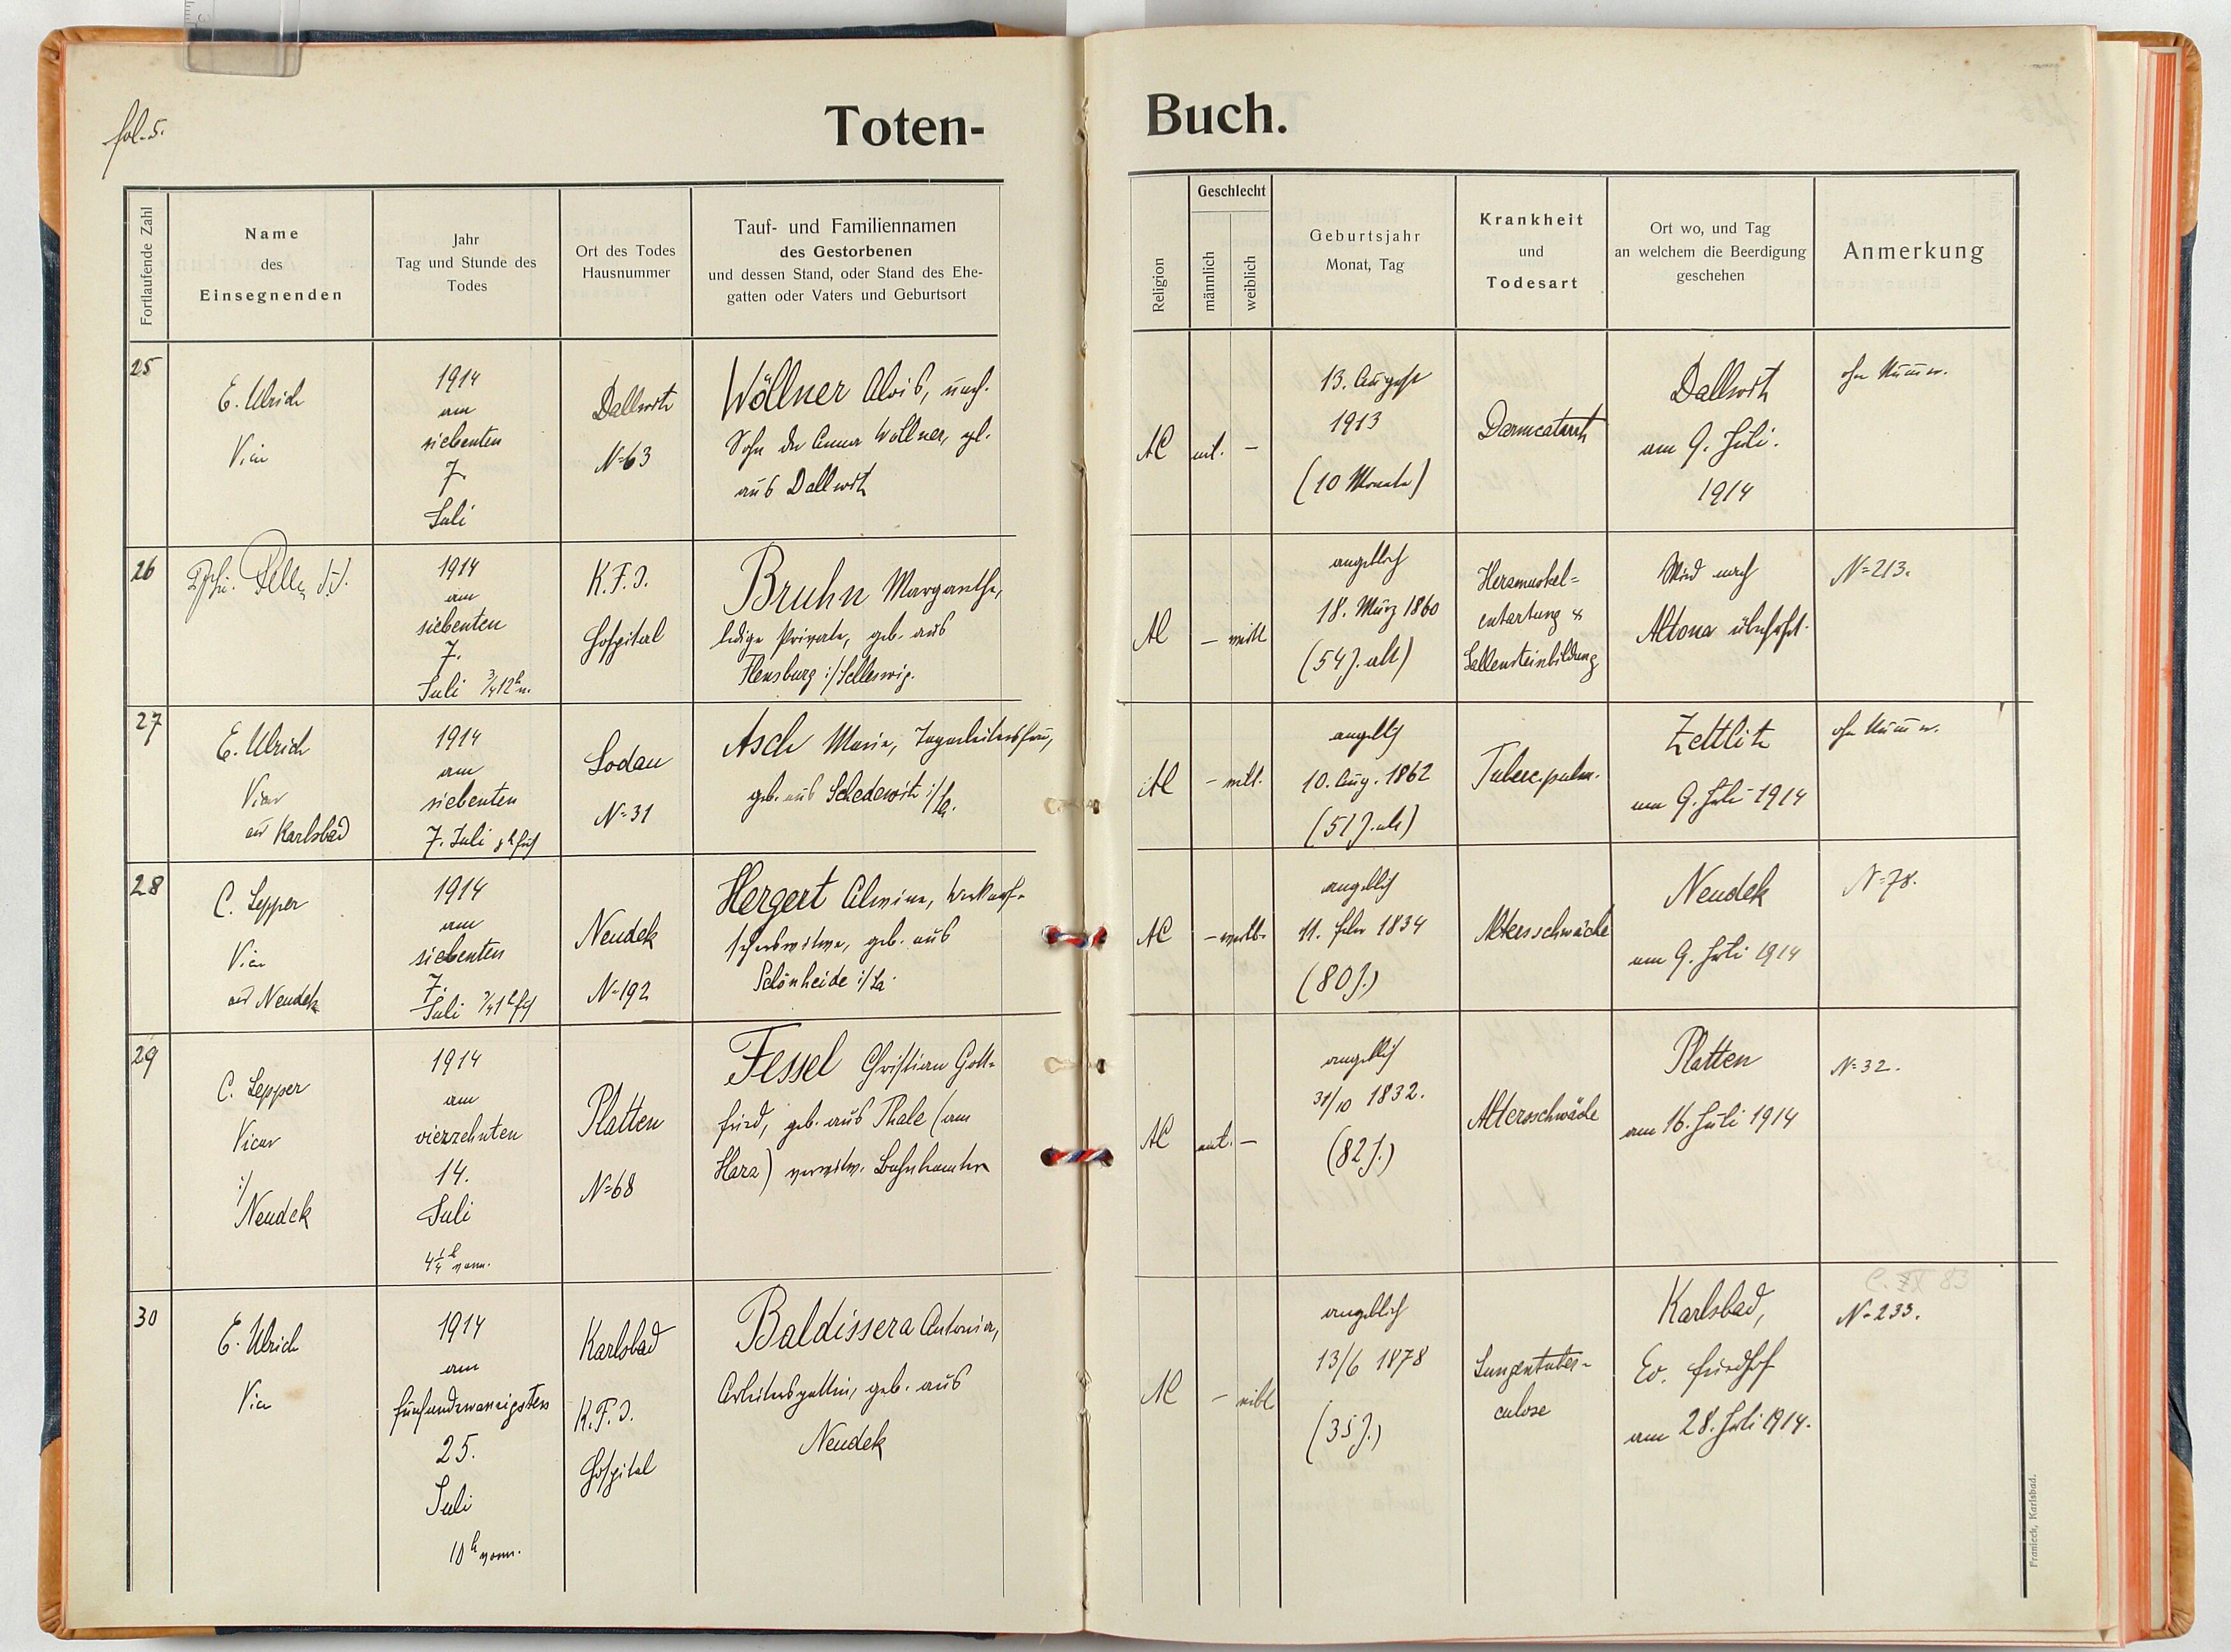 fol. 5.
Toten-
Buch.
Fortlaufende Zahl
Name
des
Einsegnenden
Jahr
Tag und Stunde des
Todes
Ort des Todes
Hausnummer
Tauf- und Familiennamen
des Gestorbenen
und dessen Stand, oder Stand des Ehe-
gatten oder Vaters und Geburtsort
Religion
Geschlecht
männlich
weiblich
Geburtsjahr
Monat, Tag
Krankheit
und
Todesart
Ort wo, und Tag
an welchem die Beerdigung
geschehen
Anmerkung
25
E. Ulrich
1914
am
siebenten
7.
Juli
Dallwitz
N=63
Wöllner Alois, unehl.
Sohn der Anna Wöllner, gb.
aus Dallwitz
AC
ml. -
13. August
1913
(10 Monate)
Darmcatarrh
Dallwitz
am 9. Juli.
1914
26
1914
am
siebenten
7.
Juli ¾12h
K.F.J.
Hospital
Bruhn Margarethe,
ledige Private, geb. aus
Flensburg i/Schleswig.
AC
- weibl
angeblich
18. März 1860
(54 J. alt)
Herzmuskel=
entartung &
Gallensteinbildung
Wird nach
Altona überführt.
N=213.
27
E. Ulrich
Vicar
aus Karlsbad
1914
am
siebenten
7. Juli 8h früh
Sodau
N=31
Asch Marie, Tagarbeitersfrau,
geb. aus Schedewitz i/Sa.
AC
- weibl.
angeblich
10. Aug. 1862
(51 J. alt)
Tuberc. pulm.
Zettlitz
am 9. Juli 1914
28
C. Lepper
aus Neudek
1914
am
siebenten
7.
Juli ¾1h früh
Neudek
N=192
Hergert Alwine,
geb. aus
Schönheide i/Sa.
AC
- weibl.
angeblich
11. Febr 1834
(80 J.)
Altersschwäche
Neudek
am 9. Juli 1914
N=78.
29
C. Lepper
Vicar
i/
Neudek
1914
am
vierzehnten
14.
Juli
4¼h vorm.
Platten
N=68
Fessel Christian Gott-
fried, geb. aus Thale (am
Harz) verwitw. Bahnbeamter
AC
ml. -
angeblich
31/10 1832.
(82 J.)
Altersschwäche
Platten
am 16. Juli 1914
N=32.
30
E. Ulrich
1914
am
fünfundzwanzigsten
25.
Juli
10h vorm.
Karlsbad
K.F.J.
Hospital
Baldissera Antonia,
Arbeitersgattin, geb. aus
Neudek
AC
- weibl
angeblich
13/6 1878
(35 J.)
Lungentuber-
culose
Karlsbad,
Ev. Friedhof
am 28. Juli 1914.
C. IX 83
N=233.
Franieck, Karlsbad.